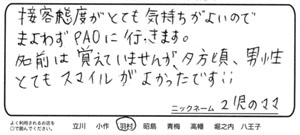 接客態度がとても気持ちがよいので
まよわずPAOに行きます。
名前は覚えていませんが、夕方頃、男性
とてもスマイルがよかったです!!
ニックネーム 2児のママ
よく利用されるお店を
○で囲んでください。
立川 小作 羽村 昭島 青梅 高幡 堀之内 八王子